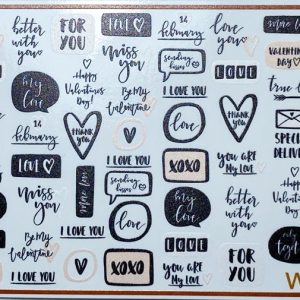 better
with
you
FOR
YOU
LOVE
14
february
love
you
more love
my
love
miss
you
sending
kisses
VALENTINE
DAY
Happy
Valentines
Day!
Be My
Valentine
I LOVE YOU
LOVE
true
14
february
THANK
YOU
LOVE
I LOVE YOU
LOVE
THANK
YOU
SPECIAL
DELIVERY
miss
you
more love
sending
kisses
XOXO
YOU ARE
My LOVE
Happy
Valentines
Day!
Be My
Valentine
LOVE
my
love
better
with
you
I LOVE YOU
XOXO
LOVE
I LOVE YOU
FOR
YOU